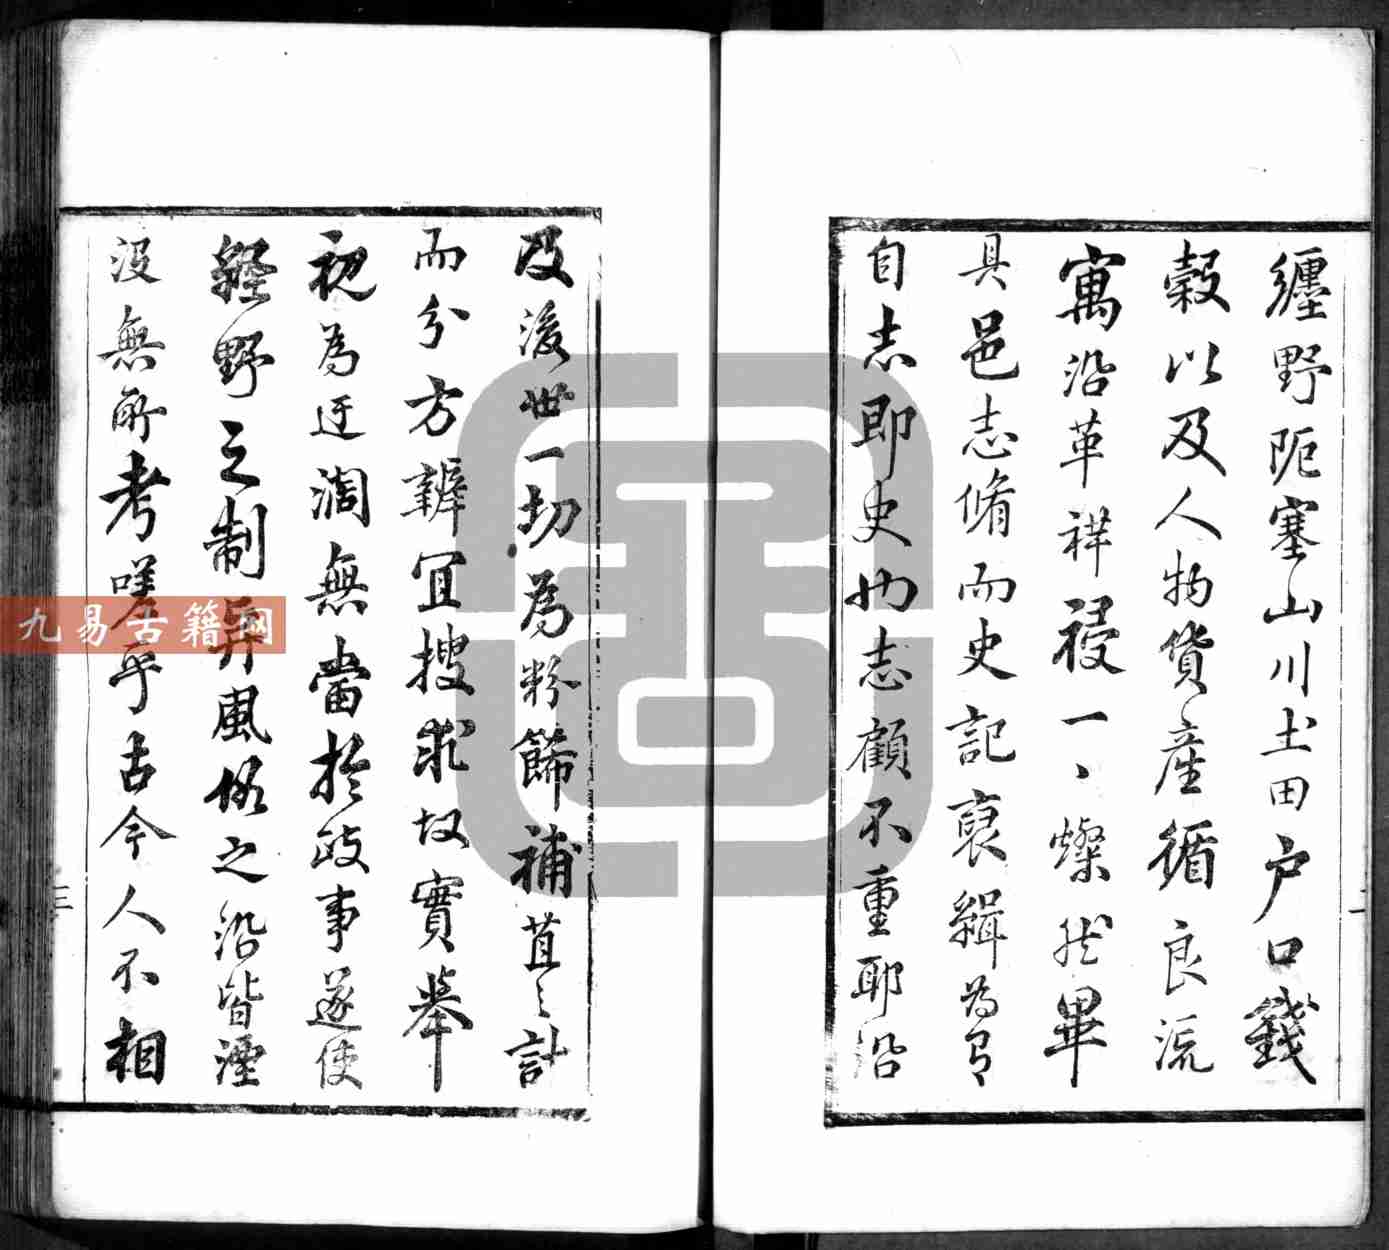 纏野阨塞山川土田户口錢
穀以及人物貨産循良流
寓沿革祥祲一、燦然畢
具邑志脩而史記裒緝為有
自志即史也志顧不重耶沿
及後世一切為粉餙補苴之計
而分方辨冝搜求攷實舉
視為迂濶無當於政事遂使
經野之制弁風俗之沿皆湮
没無所考嗟乎古今人不相
三
九易古籍网